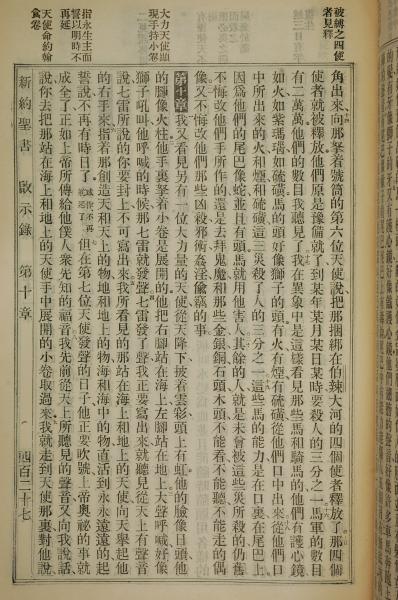 被縛之四使者見釋
大力天使顯現手持小卷
指永生主而誓以明時不再延
天使命約翰食卷
角出來向那拏着號筒的第六位天使說把那捆綁在伯辣大河的四個使者釋放了那四個
使者就被釋放他們原是豫備就了到某年某月某日某時要殺人的三分之一馬軍的數目
有二萬萬他們的數目我聽見了我在異象中是這樣看見那些馬和騎馬的他們有護心鏡
如火如紫瑪瑙如硫磺馬的頭好像獅子的頭有火有煙有硫磺從他們口中出來從他們口
中所出來的火和煙和硫磺這三災殺了人的三分之一這些馬的能力是在口裏在尾巴上
因爲他們的尾巴像蛇並且有頭馬就用他害人其餘的人就是未曾被這些災所殺的仍舊
不悔改他們手所作的還是去拜鬼魔和那些金銀銅石頭木頭不能看不能聽不能走的偶
像又不悔改他們那些凶殺邪術姦淫偸竊的事
第十章我又看見另有一位大力量的天使從天降下披着雲彩頭上有虹他的臉像日頭他
的腳像火柱他手裏拏着小卷是展開的他把右腳站在海上左腳站在地上大聲呼喊好像
獅子吼叫他呼喊的時候那七雷就發聲七雷發了聲我正要寫出來就聽見從天上有聲音
說七雷所說的你要封上不可寫出來我所看見的那站在海上和地上的天使向天舉起他
的右手來指着那創造天和天上的物地和地上的物海和海中的物直活到永永遠遠的起
誓說不再有時日了或作不再躭延了但在第七位天使發聲的日子他正要吹號上帝奧祕的事就
成全了正如上帝所傳給他僕人衆先知的福音我先前從天上所聽見的聲音又向我說話
說你去把那站在海上和地上的天使手中展開的小卷取過來我就走到天使那裏對他說
新約聖書 啟示錄 第十章 四百二十七